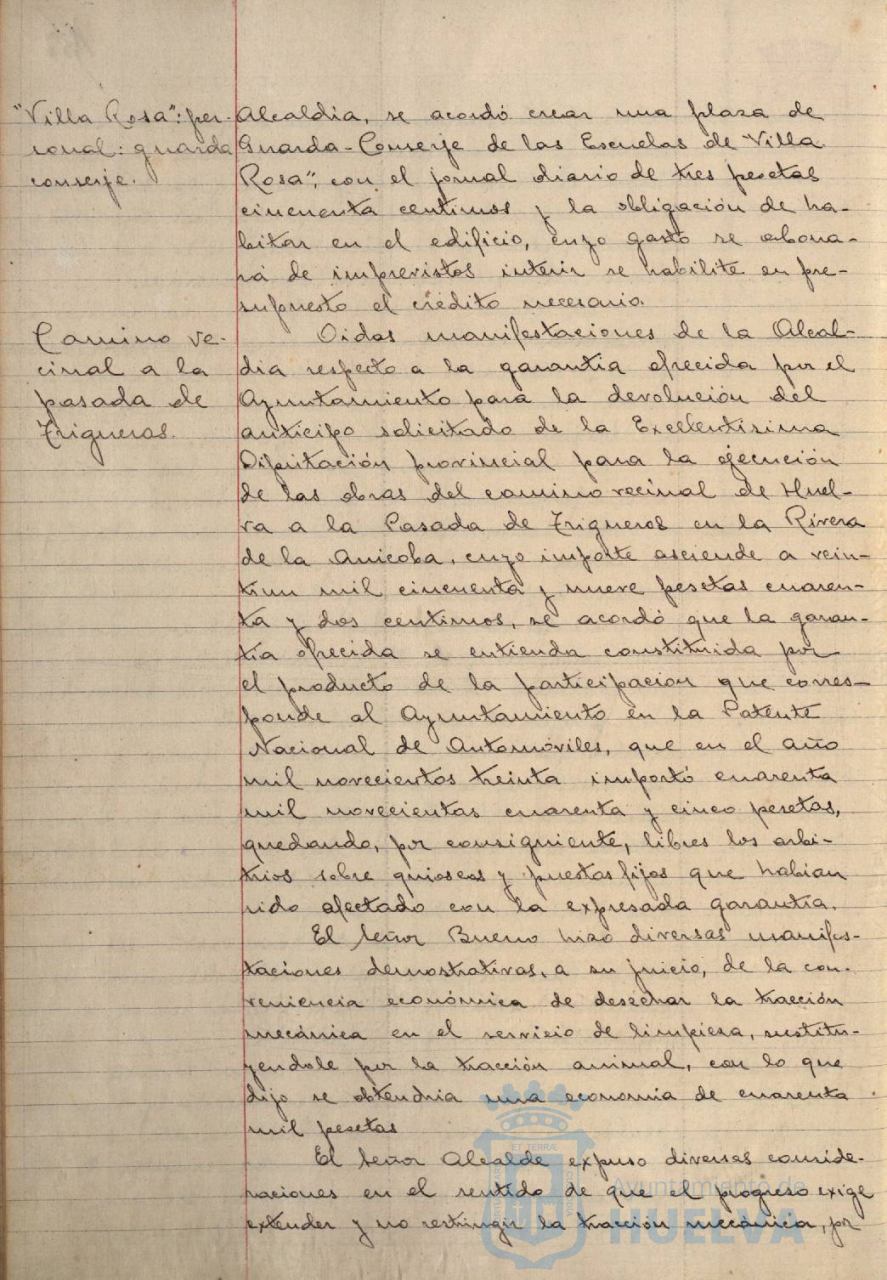 "Villa Rosa": per-
sonal: guarda
conserje.
Alcaldía, se acordó crear una plaza de
Guarda-Conserje de las Escuelas de Villa
Rosa", con el jornal diario de tres pesetas
cincuenta centimos y la obligación de ha-
bitar en el edificio, cuyo gasto se abona-
rá de imprevistos interin se habilite en pre-
supuesto el crédito necesario.
Camino ve-
cinal a la
pasada de
Trigueros.
Oidas manifestaciones de la Alcal-
dia respecto a la garantía ofrecida por el
Ayuntamiento para la devolución del
anticipo solicitado de la Excelentisima
Diputación provincial para la ejecución
de las obras del camino vecinal de Huel-
va a la Pasada de Trigueros en la Rivera
de la Anicoba, cuyo importe asciende a vein-
tiun mil cincuenta y nueve pesetas cuaren-
ta y dos centimos, se acordó que la garan-
tía ofrecida se entienda constituida por
el producto de la participacion que corres-
ponde al Ayuntamiento en la Patente
Nacional de Automóviles, que en el año
mil novecientos treinta importó cuarenta
mil novecientas cuarenta y cinco pesetas,
quedando, por consiguiente, libres los arbi-
trios sobre quioscos y puestos fijos que habían
sido afectado con la expresada garantía.
El Señor Bueno hizo diversas manifes-
taciones demostrativas, a su juicio, de la con-
veniencia económica de desechar la tracción
mecánica en el servicio de limpieza, sustitu-
yendole por la tracción animal, con lo que
dijo se obtendria una economía de cuarenta
mil pesetas
El Señor Alcalde expuso diversas conside-
raciones en el sentido de que el progreso exige
extender y no restringir la tracción mecánica, por
ET TERRÆ
Ayuntamiento de
HUELVA